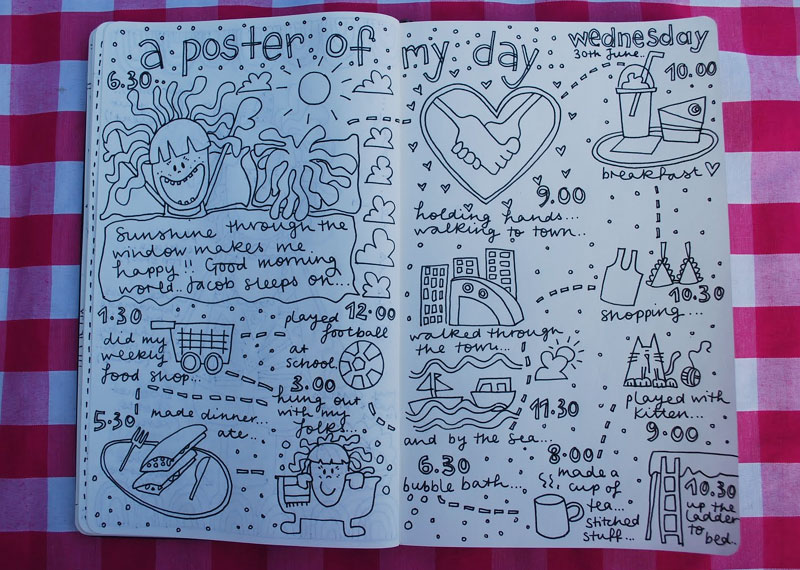 a poster of my day
wednesday
30th June..
6.30..
Sunshine through the
window makes me
happy!! Good morning
world.. Jacob sleeps on...
9.00
holding hands...
walking to town..
10.00
breakfast
10.30
shopping...
walked through
the town...
11.30
and by the sea...
12.00
played
football
at
school.
1.30
did my
weekly
food shop...
3.00
hung out
with my
folks...
5.30
made dinner...
ate...
6.30
bubble bath...
8.00
made a
cup of
tea...
stitched
stuff...
played with
kitten...
9.00
10.30
up the
ladder
to
bed.